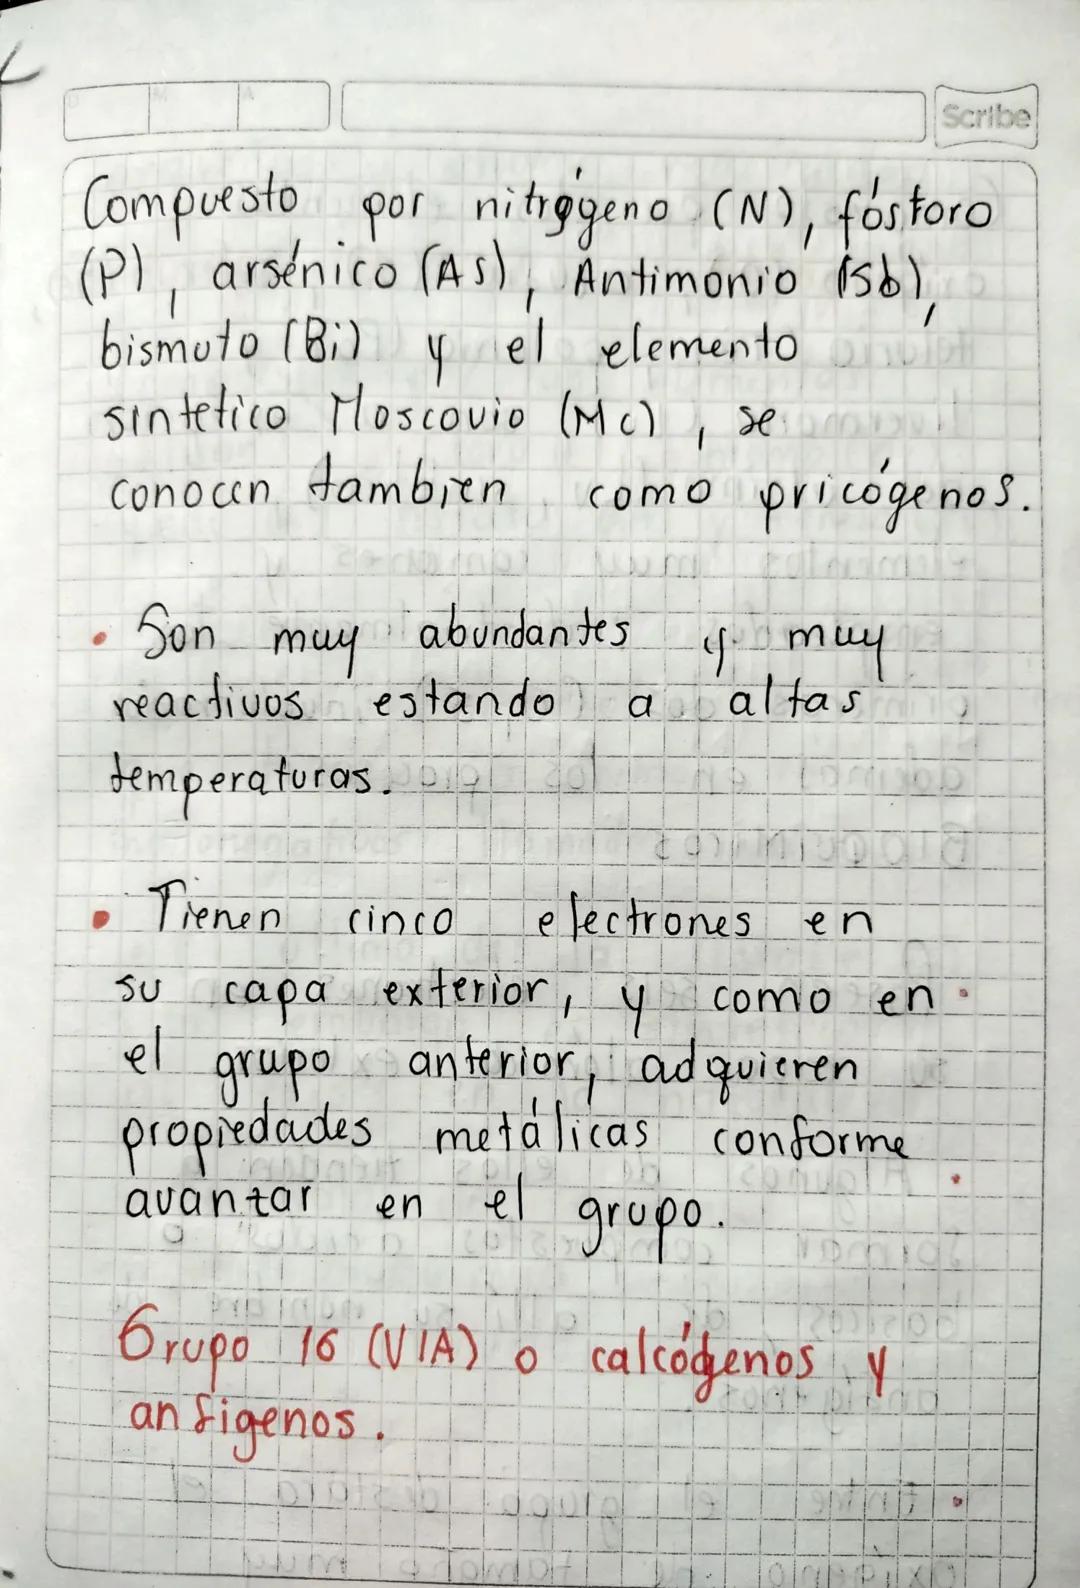 Scribe
Compuesto por nitrógeno (N), fósforo
(P), arsénico (As), Antimonio (Sb),
bismuto (Bi) y el elemento
sintetico Moscovio (Mc), se
conocen tambien como pricógenos.
• Son muy abundantes y muy
reactivos estando a altas
temperaturas.
• Tienen cinco electrones en
su capa exterior, y como en
el grupo anterior, adquieren
propiedades metálicas conforme
avanzar en el grupo.
Grupo 16 (VIA) o calcógenos y
anfigenos.